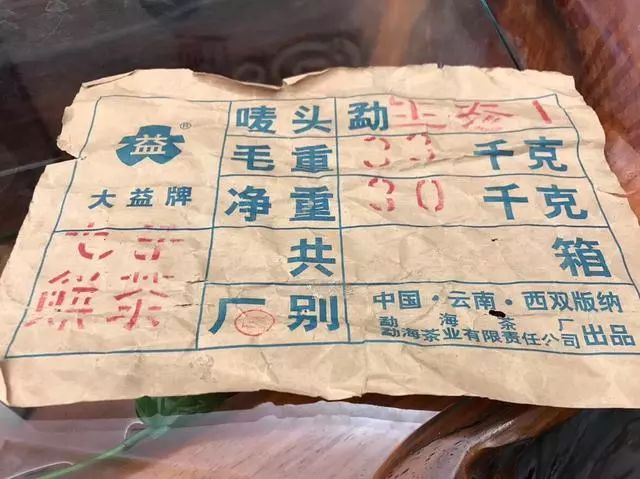 益®
大益牌
七子
餅茶
唛头 勐
毛重 33 千克
净重 30 千克
共 箱
厂别
中国·云南·西双版纳
勐海茶厂
勐海茶业有限责任公司 出品